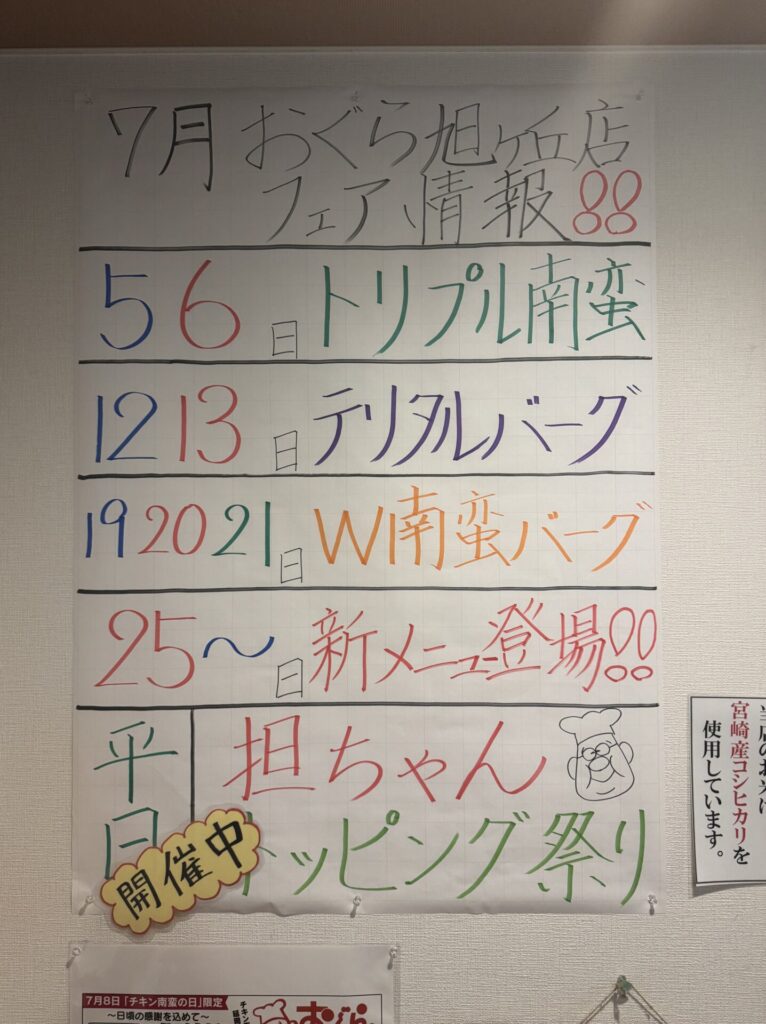 7月 おぐら旭ヶ丘店
フェア情報!!
5 6日 トリプル南蛮
12 13日 テリタルバーグ
19 20 21日 W南蛮バーグ
25〜日 新メニュー登場!!
平日 担ちゃん
トッピング祭り
開催中
当店のお米は
宮崎産コシヒカリを
使用しています。
7月8日「チキン南蛮の日」限定
〜日頃の感謝を込めて〜
おぐら